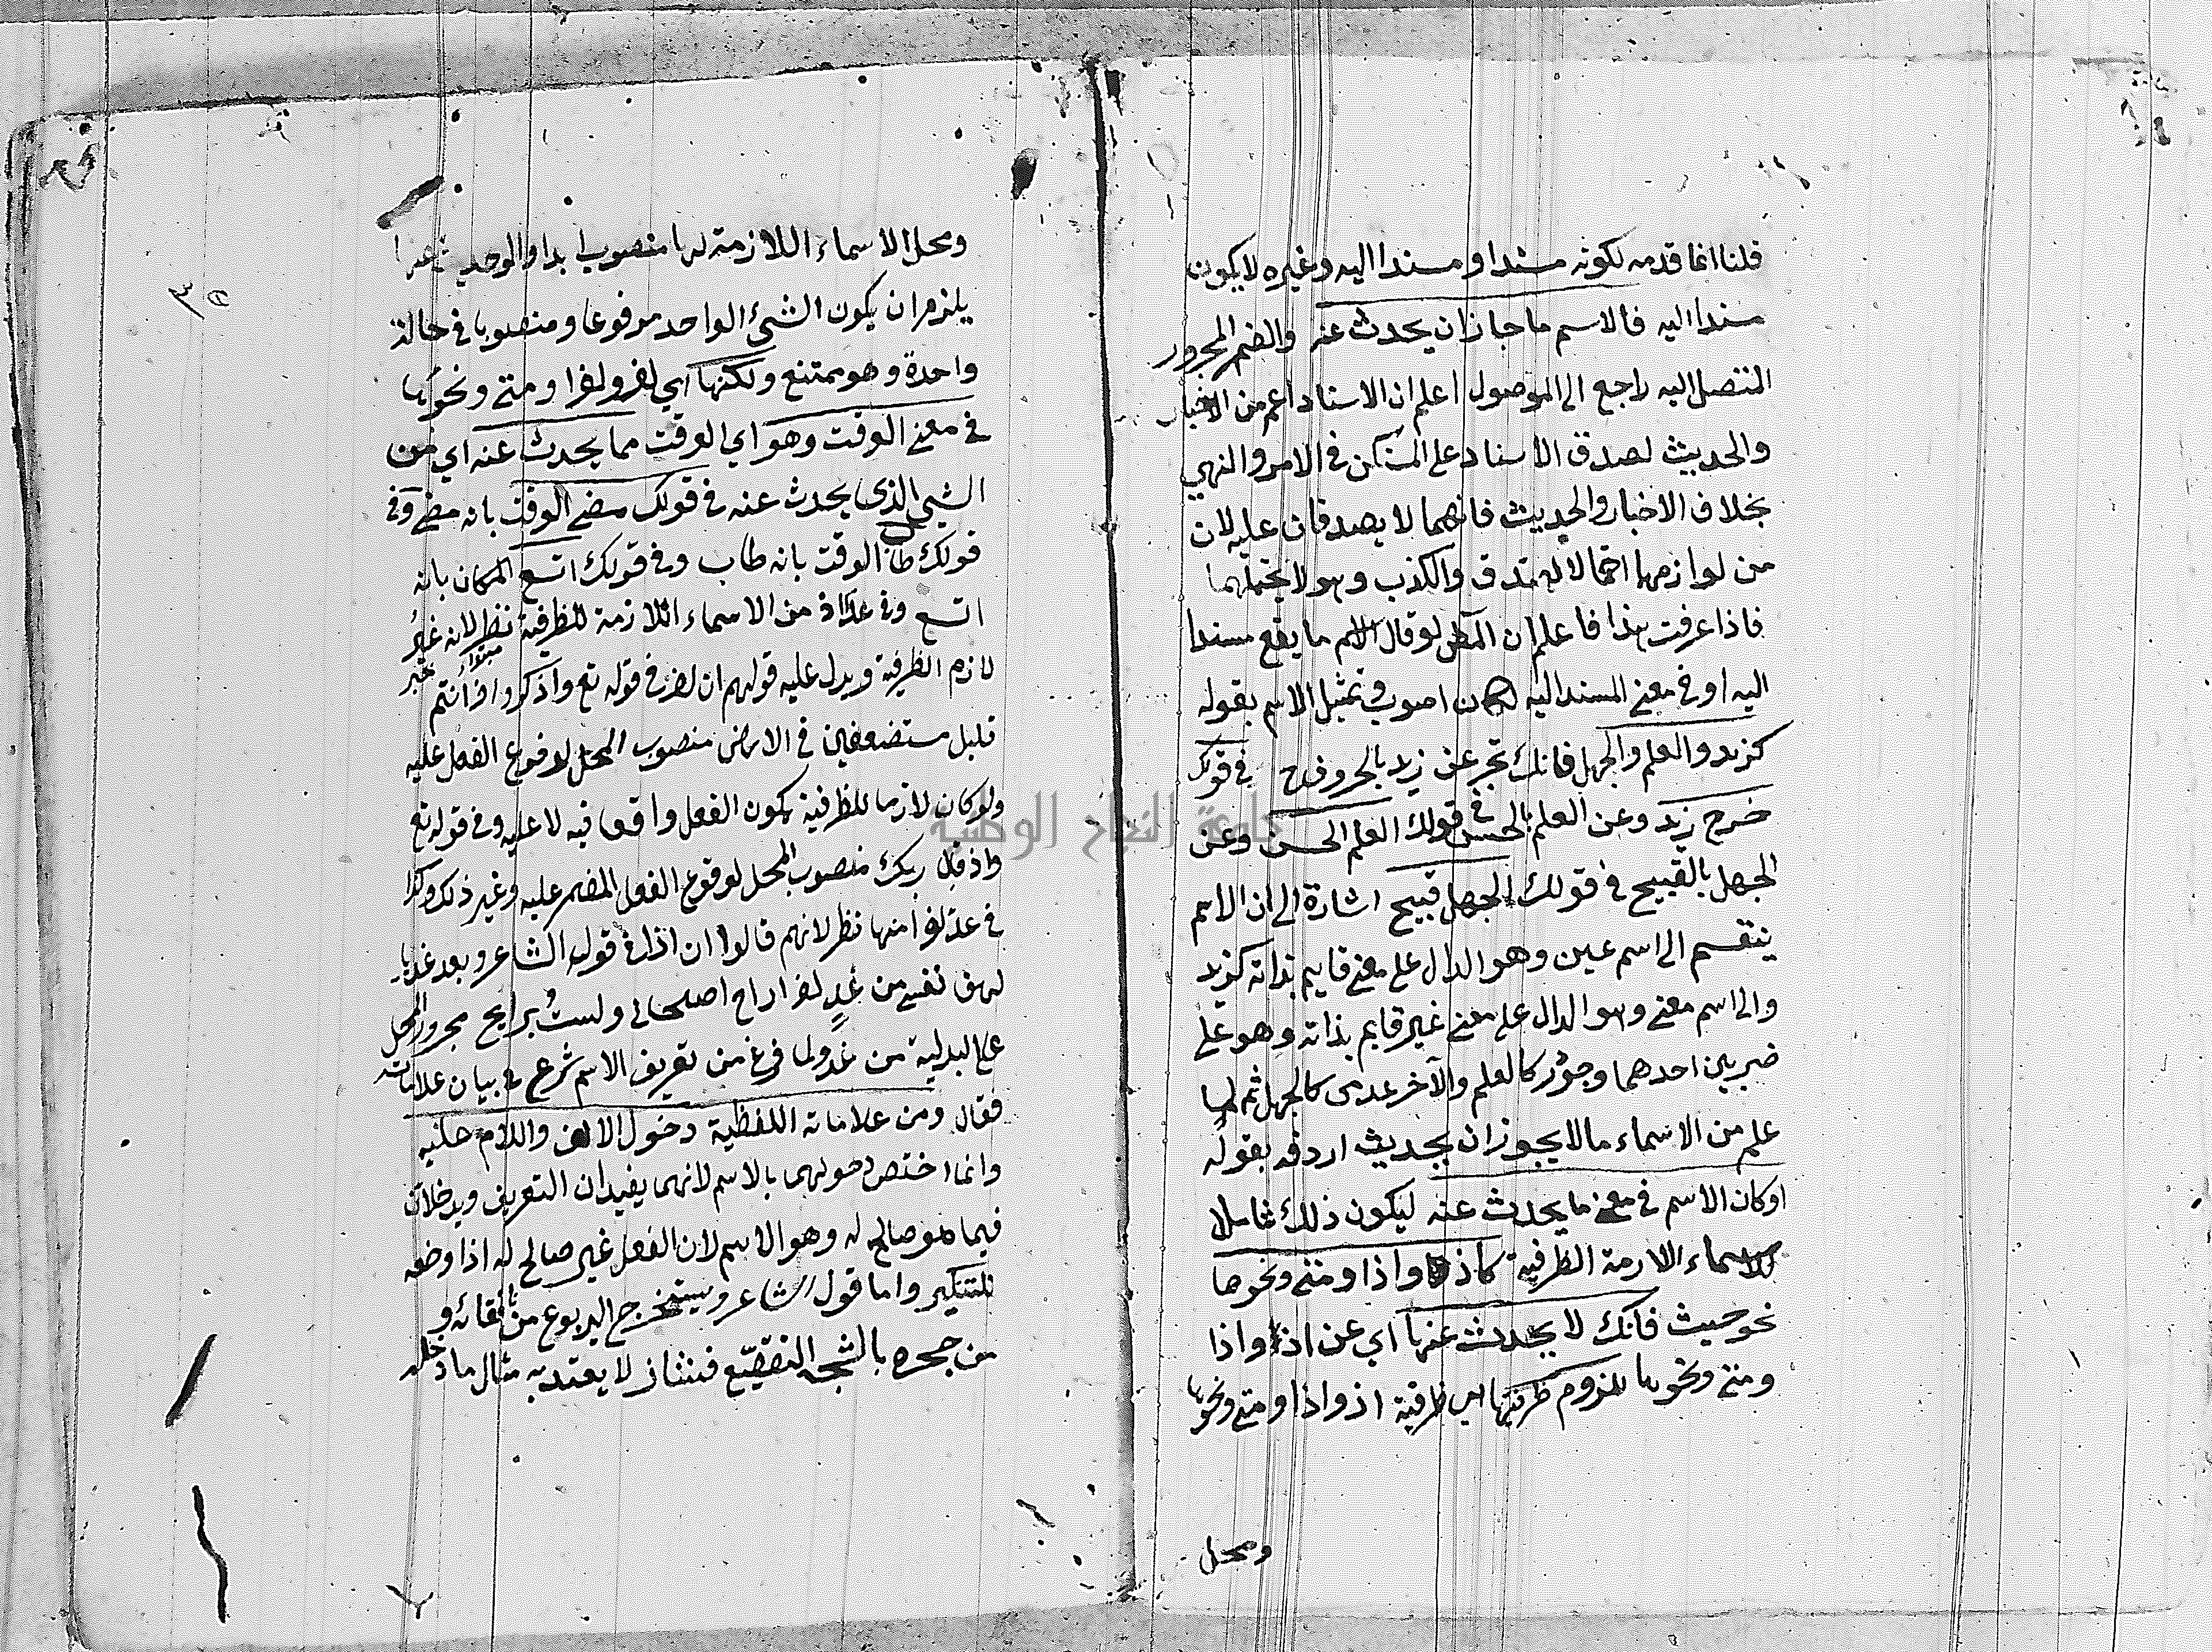 قلنا انما قدمه لكونه مسندا ومسندا اليه وغيره لا يكون
مسندا اليه فالاسم ما جاز ان يحدث عنه والضمير المجرور
المتصل اليه راجع الى الموصول اعلم ان الاسناد اعم من الاخبار
والحديث لصدق الاسناد على المستكن في الامر والنهي
بخلاف الاخبار والحديث فانهما لا يصدقان عليه لان
من لوازمها احتمال الصدق والكذب وهو لا يحتملهما
فاذا عرفت هذا فاعلم ان المص لو قال الاسم ما يقع مسندا
اليه او في معنى المسند اليه لكان اصوب في تمثيل الاسم بقوله
كزيد والعلم والجهل فانك تخبر عن زيد بالخروج في قولك
خرج زيد وعن العلم بالحسن في قولك العلم الحسن وعن
الجهل بالقبيح في قولك الجهل قبيح اشارة الى ان الاسم
ينقسم الى اسم عين وهو الدال على معنى قايم بذاته كزيد
والى اسم معنى وهو الدال على معنى غير قايم بذاته وهو على
ضربين احدهما وجود كالعلم والآخر عدمى كالجهل ثم لما
علم من الاسماء ما لا يجوز ان يحديث اردفه بقوله
او كان الاسم في معنى ما يحدث عنه ليكون ذلك شاملا
للاسماء اللازمة الظرفية كاذ واذا ومتى ونحوها
نحو حيث فانك لا يحدث عنها اي عن اذ واذا
ومتى ونحوها للزوم ظرفيتها اي ظرفية اذ واذا ومتى ونحوها
ومحل
ومحل الاسماء اللازمة لها منصوب ابدا والوحديث عنها
يلزم ان يكون الشئ الواحد مرفوعا ومنصوبا في حالة
واحدة وهو ممتنع ولكنها اي اذ واذا ومتى ونحوها
في معنى الوقت وهو اي الوقت مما يحدث عنه اي من
الشيئ الذى يحدث عنه في قولك مضى الوقت بانه مضى وفي
قولك طاب الوقت بانه طاب وفي قولك اتسع المكان بانه
اتسع وفي عد اذ من الاسماء اللازمة للظرفية نظر لانه غير
لازم الظرفية ويدل عليه قولهم ان اذ في قوله تع واذكروا اذ انتم
مبتداء خبر
قليل مستضعفين في الارض منصوب المحل لوقوع الفعل عليه
ولو كان لازما للظرفية يكون الفعل واقعا فيه لا عليه وفي قوله تع
واذ قال ربك منصوب المحل لوقوع الفعل المضمر عليه وغير ذلك وكذا
في عد اذا منها نظر لانهم قالوا ان اذا في قول الشاعر وبعد غد يا
لهف نفسى من غدٍ اذا راح اصحابى ولستُ برايح مجرور المحل
على البدلية من غد ولما فرغ من تعريف الاسم شرع في بيان علاماته
فقال ومن علاماته اللفظية دخول الالف واللام عليه
وانما اختص دخولهما بالاسم لانهما يفيدان التعريف ويدخلان
فيما هو صالح له وهو الاسم لان الفعل غير صالح له اذا وضعه
للتنكير واما قول الشاعر ويستخرج اليربوع من نافقائه و
من جحره بالشيحة اليتقصّع فشاذ لا يعتد به مثال ما دخله
جامعة النجاح الوطنية